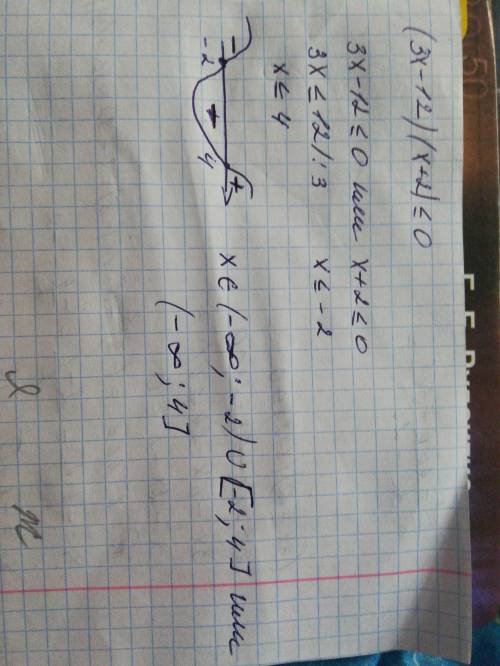 (3x-12)(x+2)≤0
3x-12≤0 или x+2≤0
3x≤12/:3 x≤-2
x≤4
- + +
-2 4
x∈(-∞;-2)∪[-2;4] или
(-∞;4]